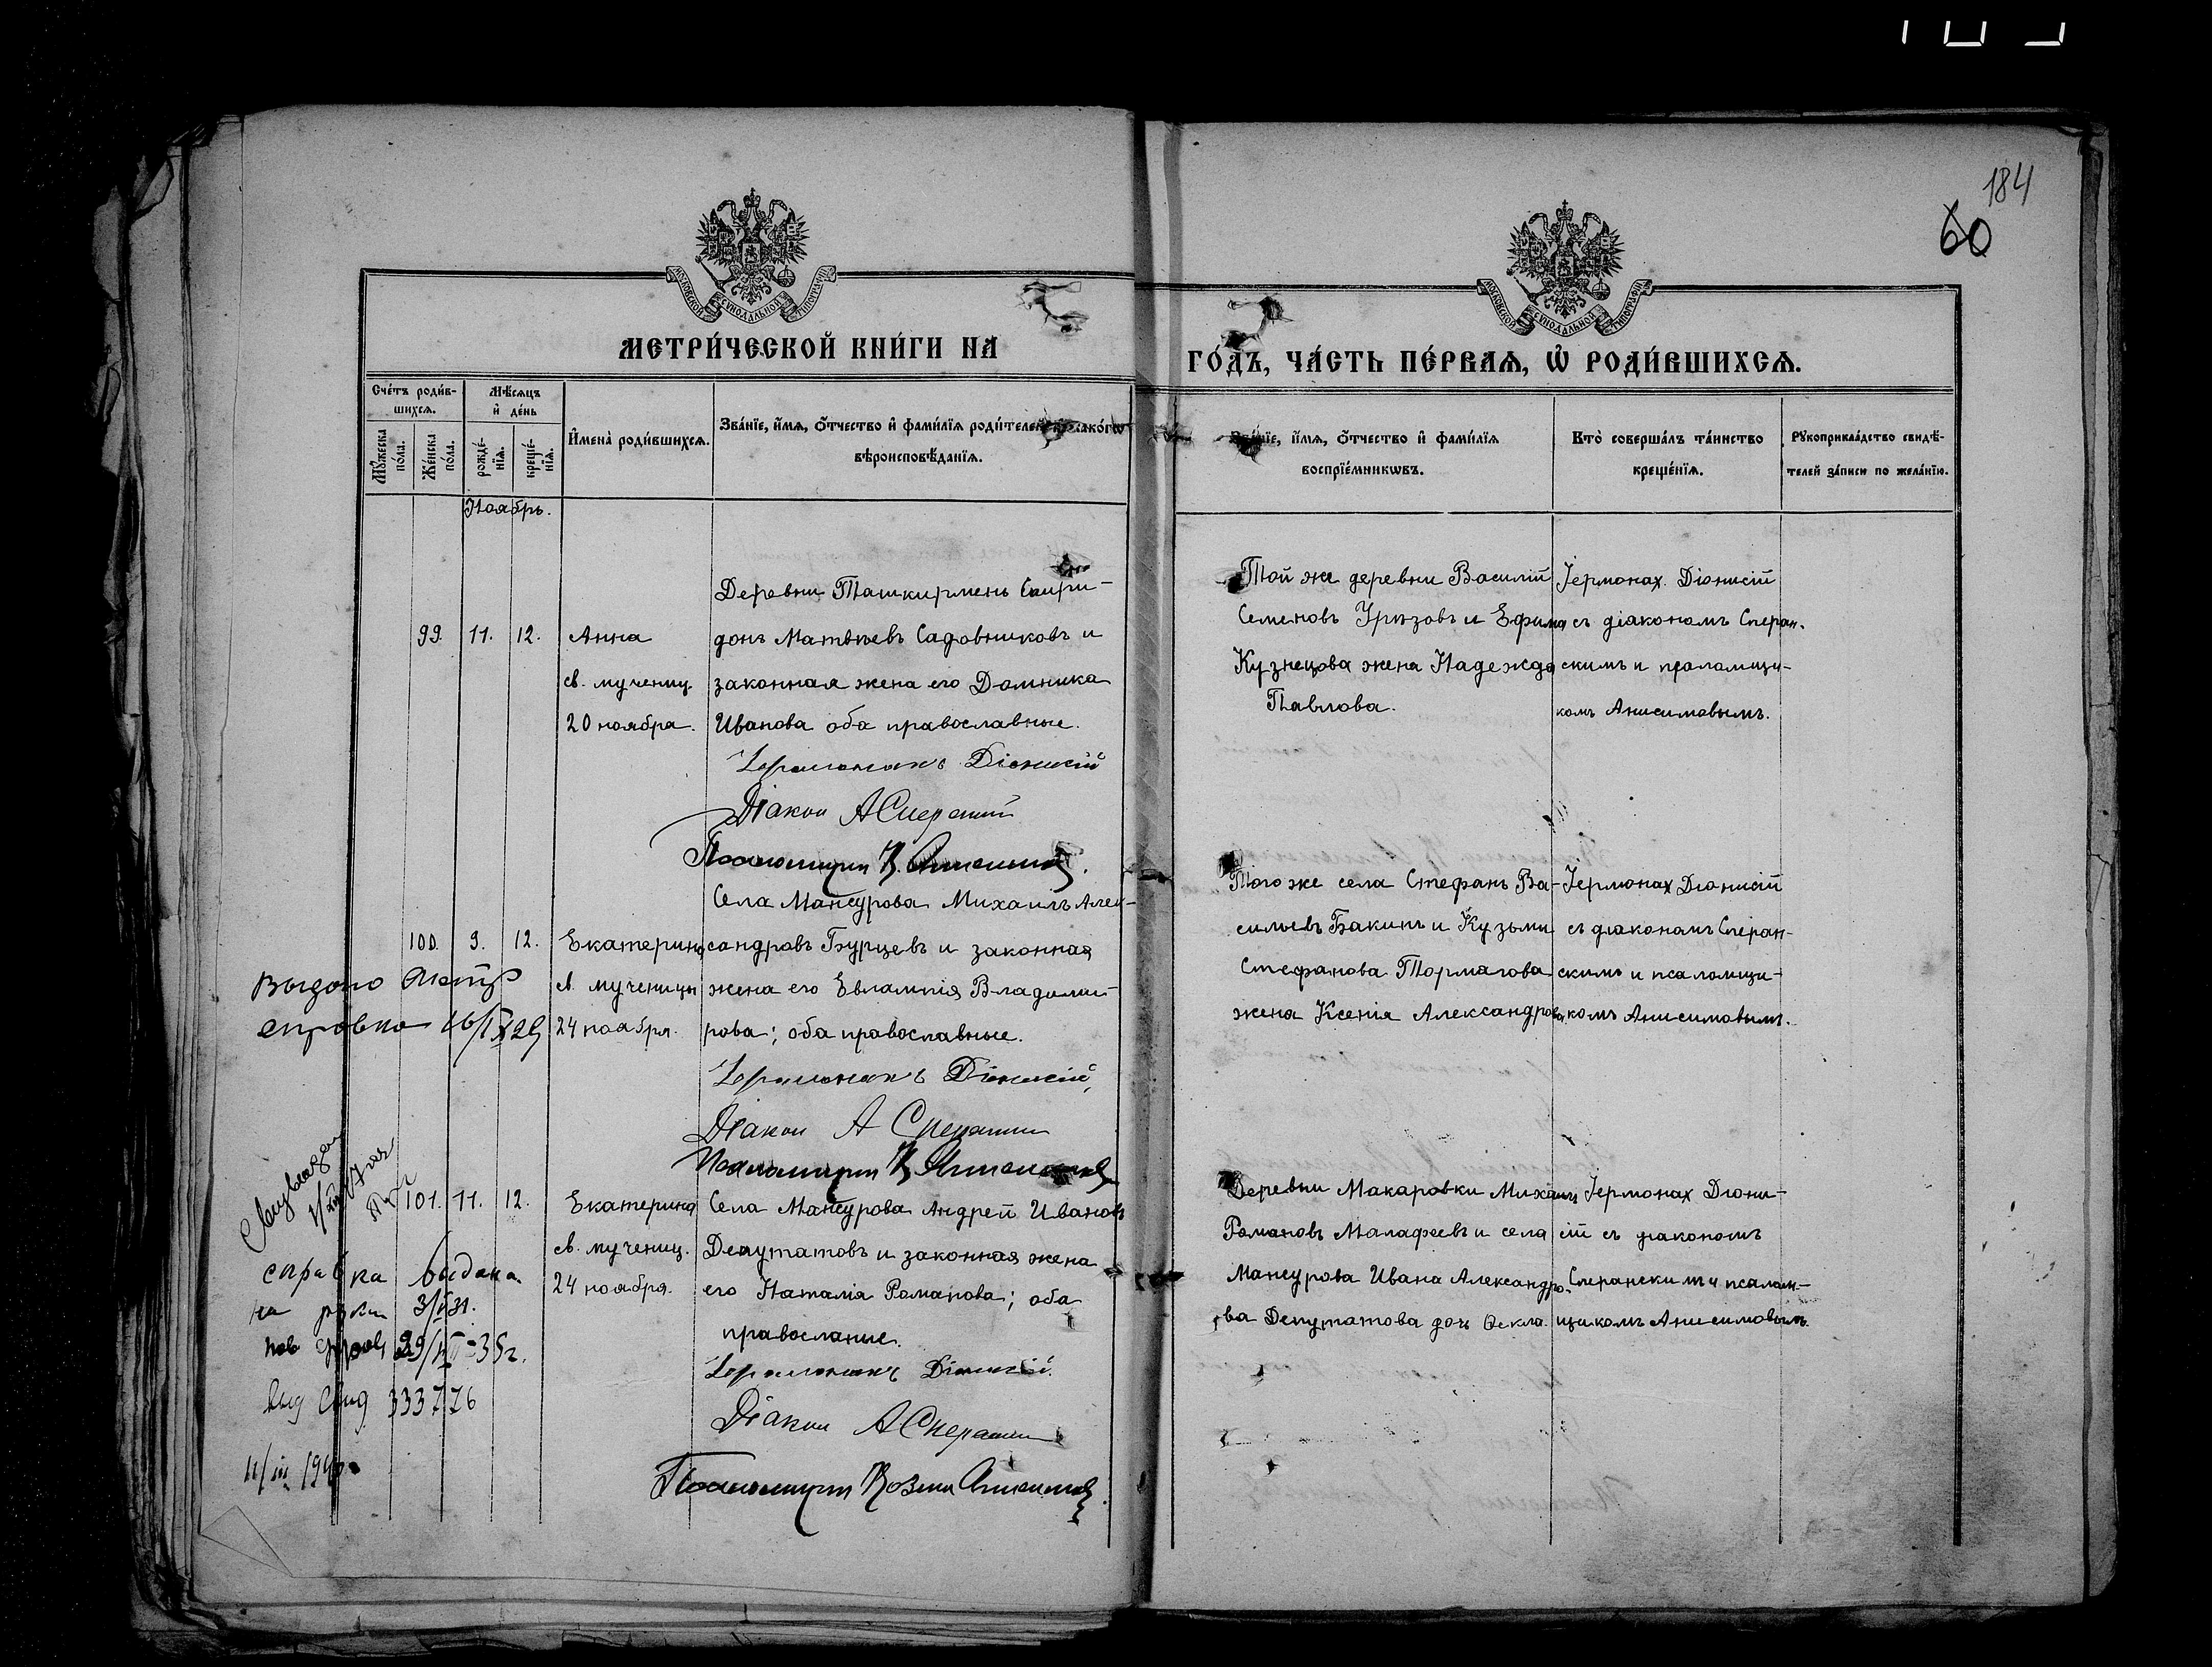 184
60
МОСКОВСКОЙ СѴНОДАЛЬНОЙ ТИПОГРАФІИ
МОСКОВСКОЙ СѴНОДАЛЬНОЙ ТИПОГРАФІИ
МЕТРИ́ЧЕСКОЙ КНИ́ГИ НА
ГО́ДЪ, ЧА́СТЬ ПЕ́РВАѦ, Ѡ҆ РОДИ́ВШИХСѦ.
Сче́тъ роди́в-
шихсѧ.
Мѣ́сѧцъ
и҆ де́нь
Мꙋ́жеска
по́ла.
Же́нска
по́ла.
рожде́-
нїѧ.
креще́-
нїѧ.
И҆мена̀ роди́вшихсѧ.
Зва́нїе, и҆́мѧ, ѻ҆́тчество и҆ фами́лїѧ роди́телей
вѣроисповѣ́данїѧ.
Зва́нїе, и҆́мѧ, ѻ҆́тчество и҆ фами́лїѧ
воспрїе́мникѡвъ.
Кто̀ соверша́лъ та́инство
креще́нїѧ.
Рꙋкоприкла́дство свидѣ́-
телей за́писи по жела́нїю.
Ноябрь.
99. 11. 12. Анна
св. мучениц.
20 ноября.
Деревни Ташкирмень Спири-
донъ Матвѣевъ Садовниковъ и
законная жена его Домника
Иванова оба православные.
Іеромонахъ Діонисій
Діакон А Сперанскій
Псаломщик К. Анисимов.
Той же деревни Василій
Семеновъ и Ефима
Кузнецова жена Надежда
Павлова.
Іермонах. Діонисій
съ діакономъ Сперан-
скимъ и псаломщи-
комъ Анисимовымъ.
100. 9. 12. Екатерина
св. мученицы
24 ноября.
Села Мансурова Михаилъ Алек-
сандровъ Бурцевъ и законная
жена его Евлампія Владими-
рова; оба православные.
Іеромонахъ Діонисій,
Діакон А Сперанский
Псаломщик К Анисимов
Того же села Стефанъ Ва-
сильевъ Бакинъ и Кузьми
Стефанова Тормагова
жена Ксенія Александрова
Іермонах Діонисій
съ діакономъ Сперан-
скимъ и псаломщи-
комъ Анисимовымъ.
Выдано метр
справка
101. 11. 12. Екатерина
св. мучениц.
24 ноября.
Села Мансурова Андрей Ивановъ
Депутатовъ и законная жена
его Наталія Романова; оба
православние.
Іеромонахъ Діонисій.
Діакон А Сперанский
Псаломщик Козьма Анисимов
Деревни Макаровки Михаилъ
Романовъ Малафеевъ и села
Мансурова Ивана Александро-
ва Депутатова дочь Ѳекла.
Іермонах Діони-
сій съ діакономъ
Сперанскимъ и псалом-
щикомъ Анисимовымъ.
справка выдана
на руки
29/ 35г.
333776